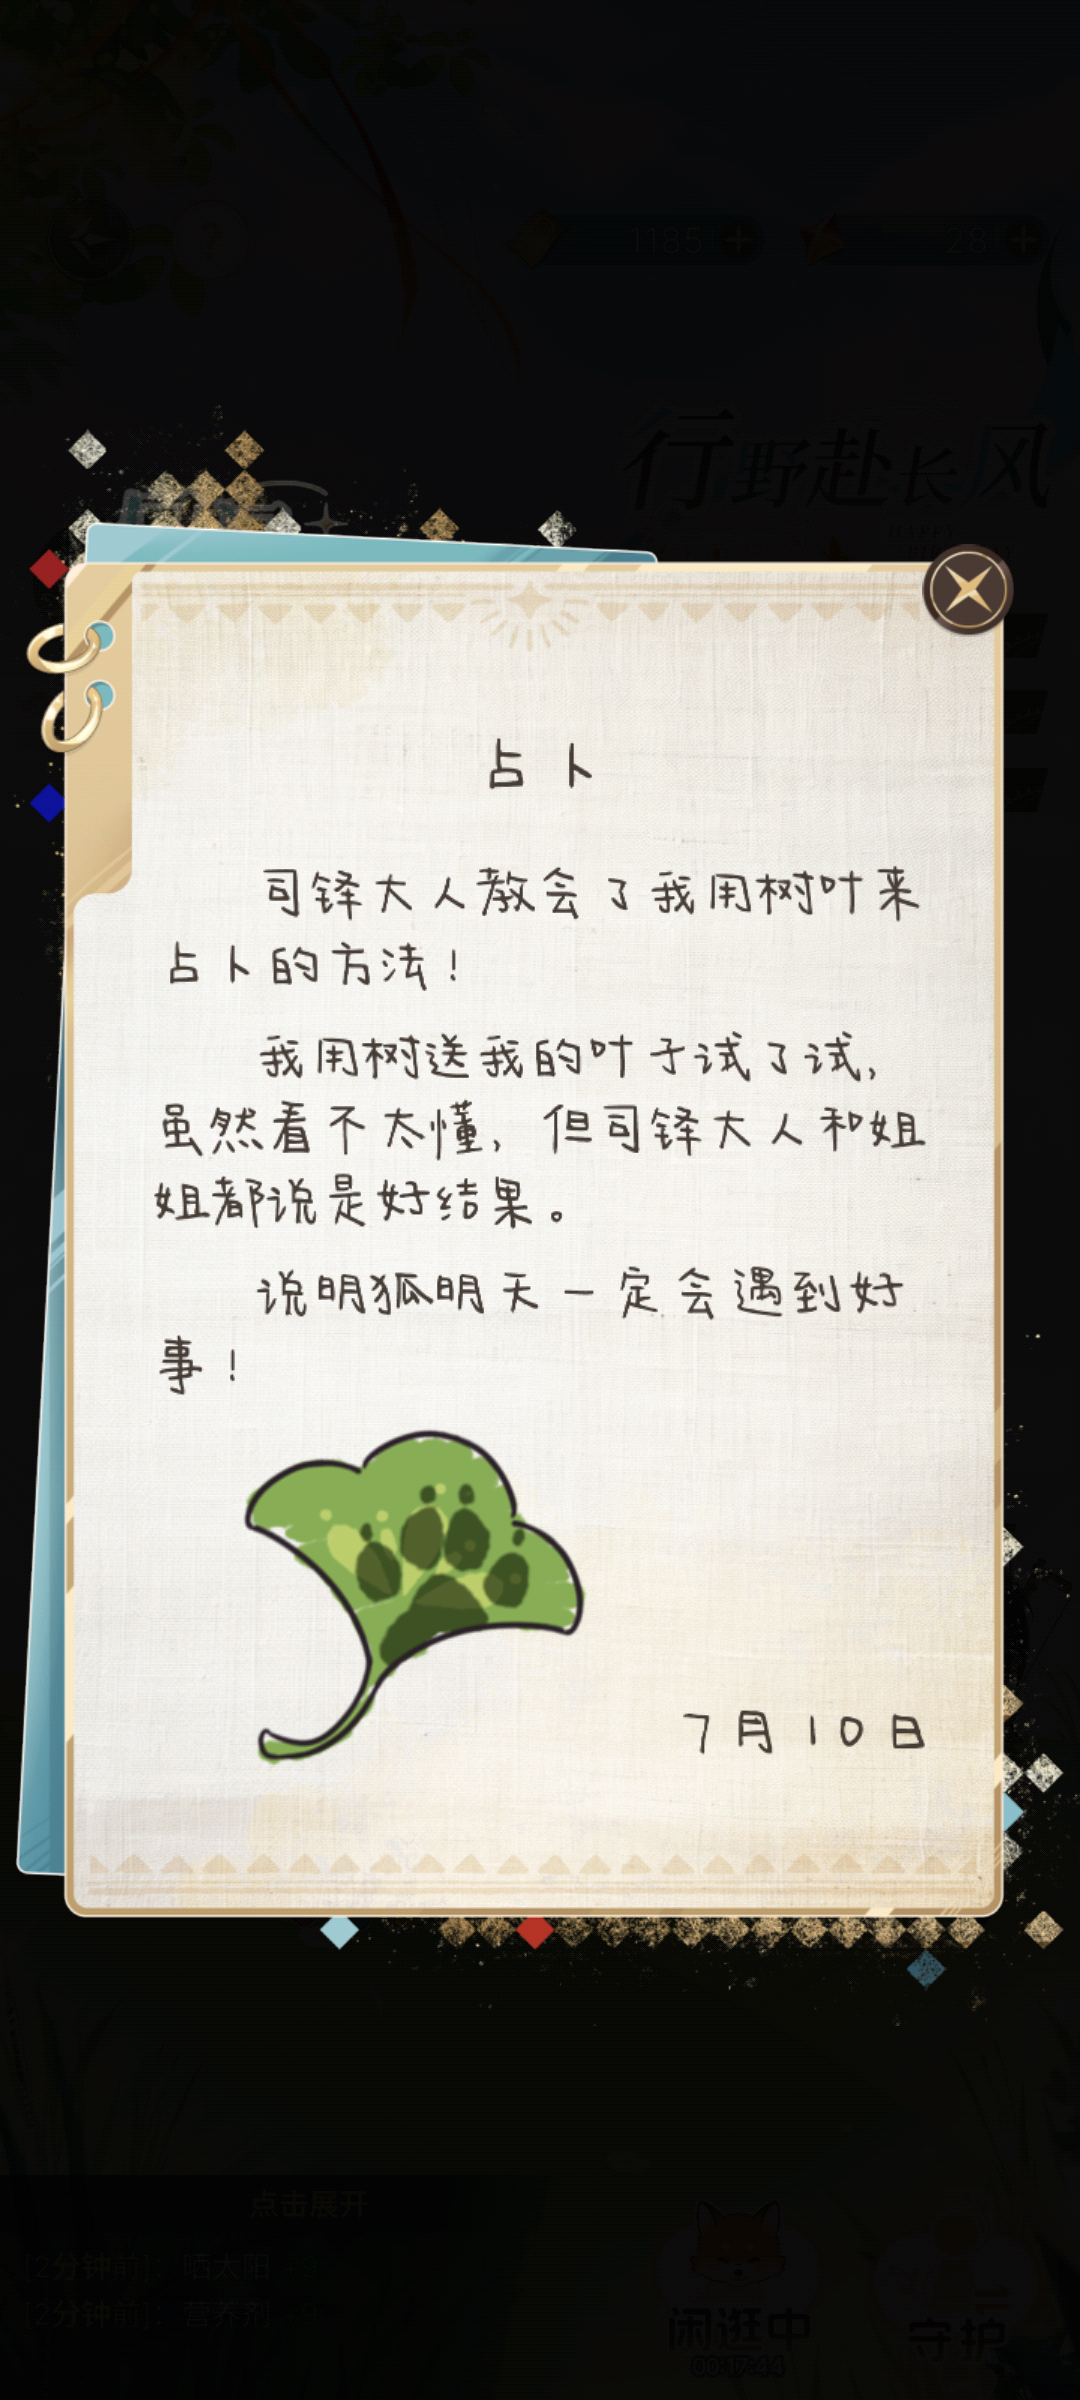 1185
28
行野赴长风
占卜
司铎大人教会了我用树叶来
占卜的方法！
我用树送我的叶子试了试，
虽然看不太懂，但司铎大人和姐
姐都说是好结果。
说明狐明天一定会遇到好
事！
7月10日
点击展开
[2分钟前]：晒太阳 +9
[2分钟前]：营养剂 +9
闲逛中
00:17:44
守护